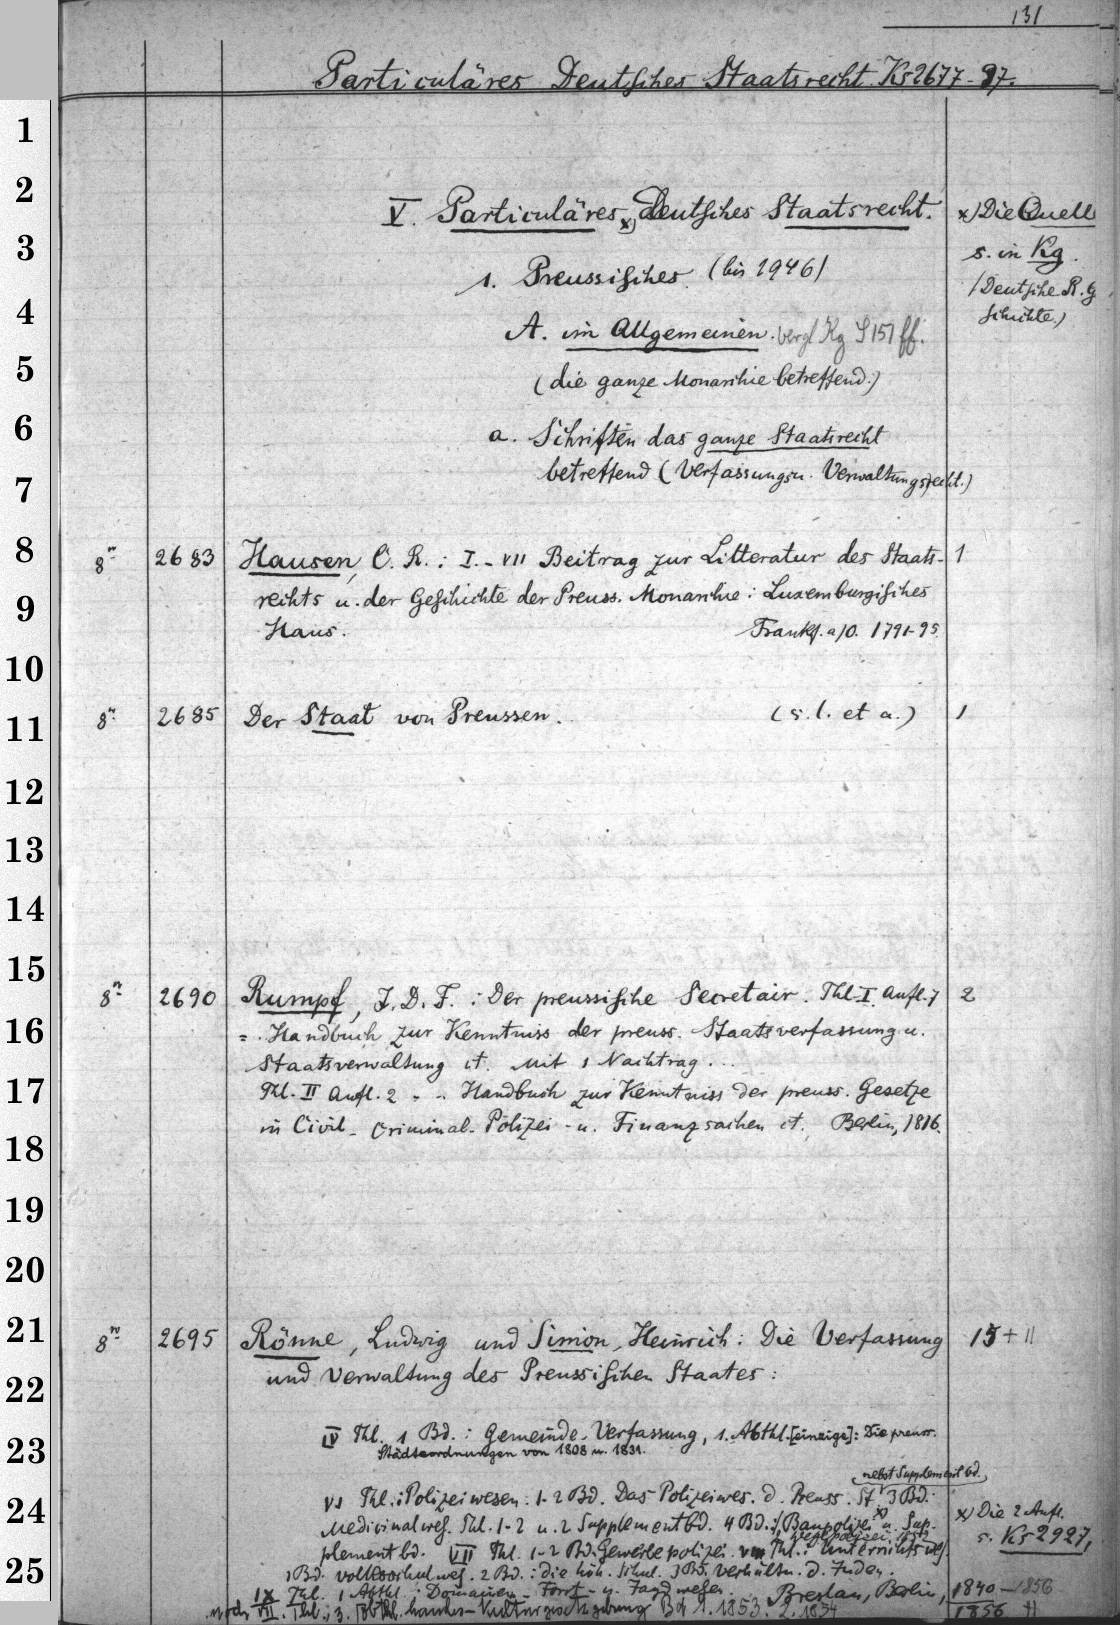 131
Particuläres Deutsches Staatsrecht. Ks 2677-97.
1
2
3
4
5
6
7
8
9
10
11
12
13
14
15
16
17
18
19
20
21
22
23
24
25
V. Particuläres x) Deutsches Staatsrecht.
x) Die Quell
s. in Kg.
(Deutsche R.G
schichte)
1. Preussisches. (bis 1946)
A. im Allgemeinen. vergl Kg S 151 ff.
(die ganze Monarchie betreffend.)
a. Schriften das ganze Staatsrecht
betreffend (Verfassungs u. Verwaltungsrecht.)
8° 2683 Hausen, C. R.: I.-VII Beitrag zur Litteratur des Staats- 1
rechts u. der Geschichte der Preuss. Monarchie: Luxemburgisches
Haus. Frankf. a/O. 1791-95.
8° 2685 Der Staat von Preussen. (s. l. et a.) 1
8° 2690 Rumpf, J. D. F.: Der preussische Secretair. Thl. I. Aufl. 7 2
= Handbuch zur Kenntniss der preuss. Staatsverfassung u.
Staatsverwaltung et. Mit 1 Nachtrag...
Thl. II Aufl. 2 = Handbuch zur Kenntniss der preuss. Gesetze
in Civil- Criminal- Polizei- u. Finanzsachen et. Berlin, 1816.
8° 2695 Rönne, Ludwig und Simon, Heinrich: Die Verfassung 15 + II
und Verwaltung des Preussischen Staates:
IV Thl. 1 Bd.: Gemeinde-Verfassung, 1. Abthl. [einzige]: Die preuss.
Städteordnungen von 1808 u. 1831.
nebst Supplementbd.
VI Thl.: Polizeiwesen: 1-2 Bd. Das Polizeiwes. d. Preuss. St 3 Bd.:
Medicinalwes. Thl. 1-2 u. 2 Supplementbd. 4 Bd.: Baupolizei x) u. Sup-
Wegepolizei 1852
plementbd. VII Thl. 1-2 Bd. Gewerbepolizei. VIII Thl.: Unterrichtswes.
1 Bd. Volksschulwes. 2 Bd.: die höh. Schul. 3 Bd. Verhältn. d. Juden.
IX Thl. 1 Abthl.: Domainen- Forst- u. Jagdwesen. Breslau, Berlin, 1840-1856
noch VII. Thl.: 3. Abthl. Landes-Kulturgesetzgebung Bd 1. 1853. 2. 1854 1856 II
x) Die 2 Aufl.
s. Ks 2927,